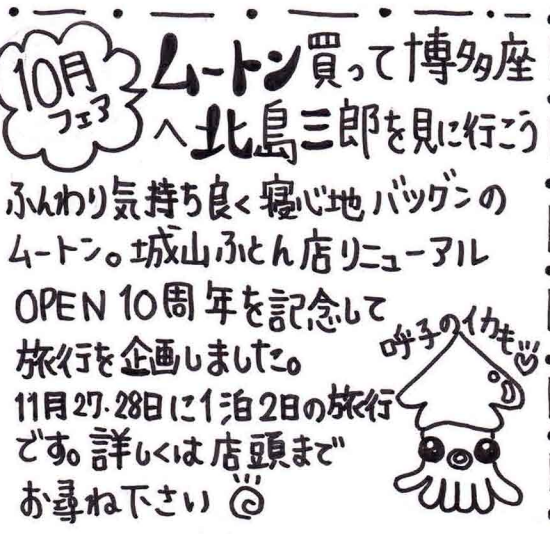 10月
フェア
ムートン買って博多座
へ北島三郎を見に行こう
ふんわり気持ち良く寝心地バツグンの
ムートン。城山ふとん店リニューアル
OPEN 10周年を記念して
旅行を企画しました。
呼子のイカも
11月27・28日に1泊2日の旅行
です。詳しくは店頭まで
お尋ね下さい